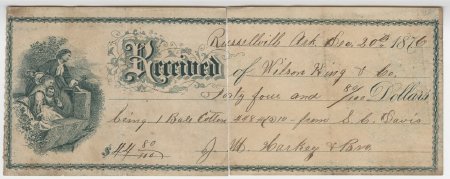 Russellville Ark Dec 20th 1876
Received of Wilson King & Co.
Forty four and 80/100 Dollars
being 1 Bale Cotton 448 @ 10 - from S. C. Davis
$44 80/100 J. M. Harkey & Bro.